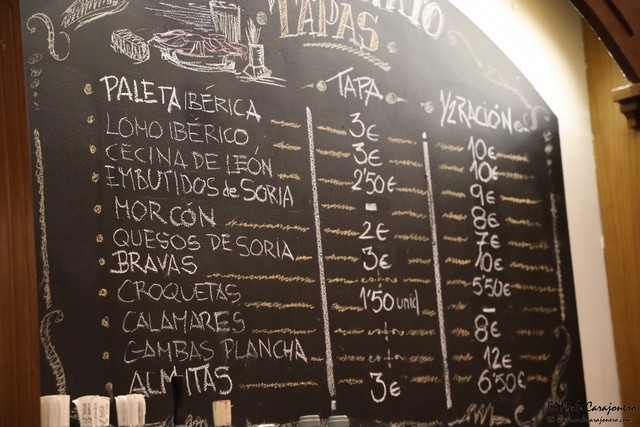 TAPAS
TAPA ½RACIÓN
PALETA IBÉRICA 3€ 10€
LOMO IBÉRICO 3€ 10€
CECINA DE LEÓN 2'50€ 9€
EMBUTIDOS de SORIA - 8€
MORCÓN 2€ 7€
QUESOS DE SORIA 3€ 10€
BRAVAS 5'50€
CROQUETAS 1'50 unid
CALAMARES 8€
GAMBAS PLANCHA 12€
ALMITAS 3€ 6'50€
Carajonero